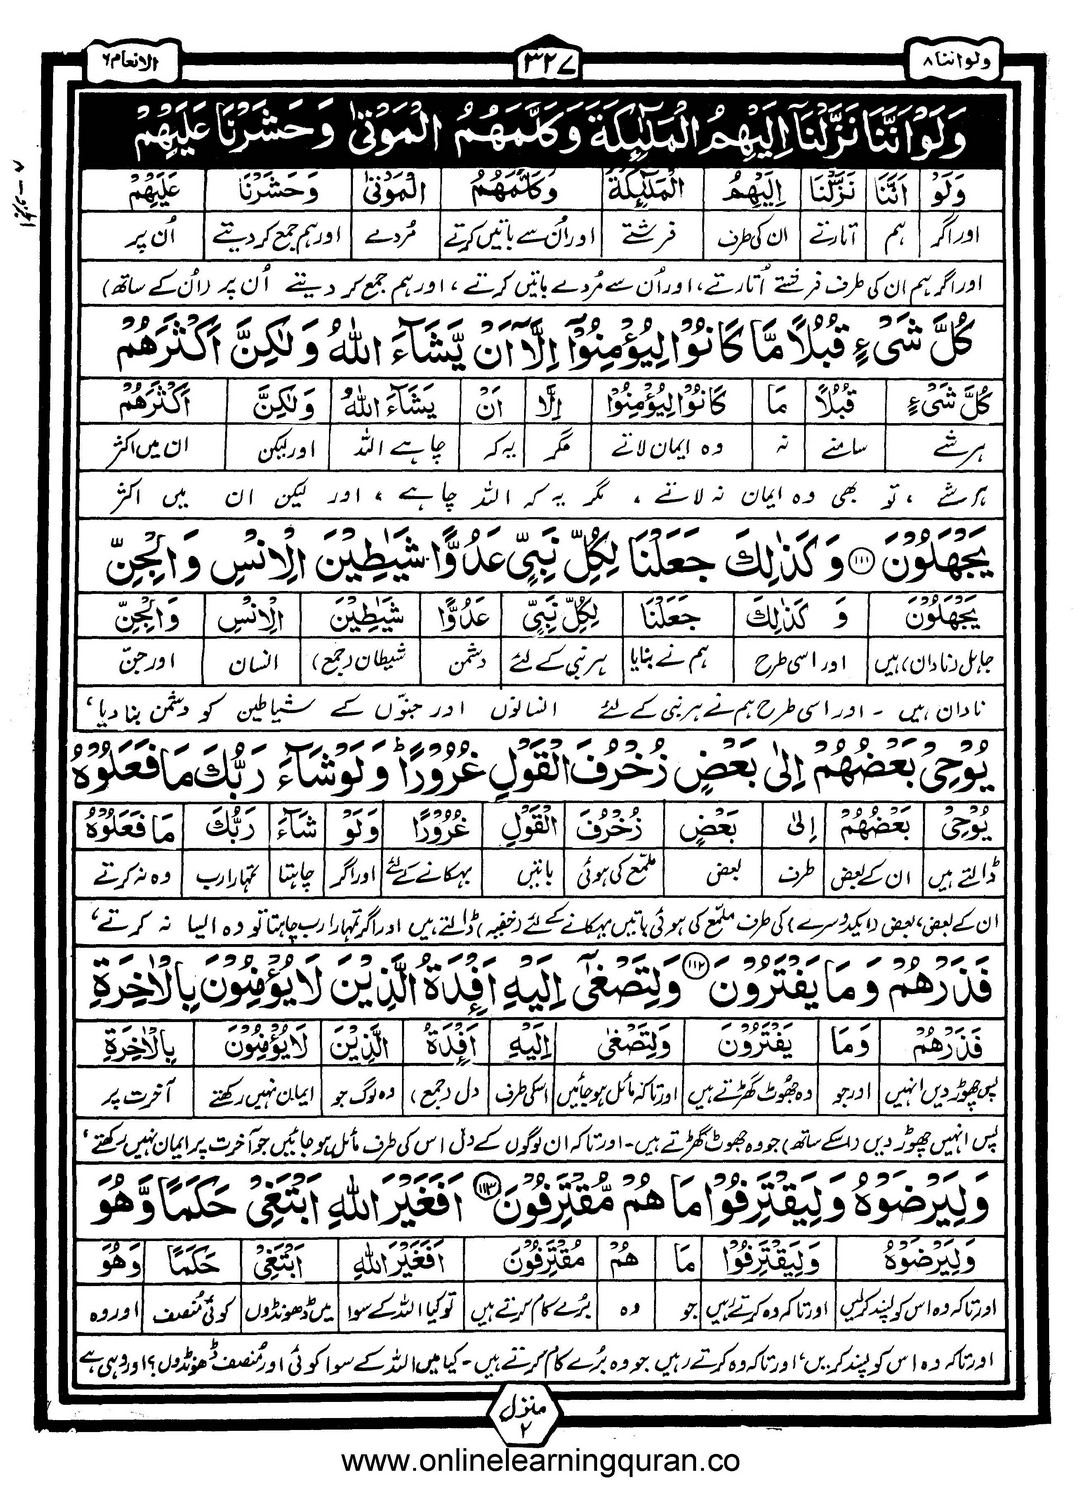 ولواننا ۸
۳۲۷
الانعام ۶
وَلَوْ اَنَّنَا نَزَّلْنَاۤ اِلَيْهِمُ الْمَلٰٓئِكَةَ وَكَلَّمَهُمُ الْمَوْتٰى وَحَشَرْنَا عَلَيْهِمْ
وَلَوْ اَنَّنَا نَزَّلْنَا اِلَيْهِمُ الْمَلٰٓئِكَةَ وَكَلَّمَهُمُ الْمَوْتٰى وَحَشَرْنَا عَلَيْهِمْ
اور اگر ہم اتارتے ان کی طرف فرشتے اور اُن سے باتیں کرتے مُردے اور ہم جمع کر دیتے اُن پر
اور اگر ہم ان کی طرف فرشتے اُتارتے، اور اُن سے مُردے باتیں کرتے، اور ہم جمع کر دیتے اُن پر (اُن کے ساتھ)
كُلَّ شَىْءٍ قُبُلًا مَّا كَانُوْا لِيُؤْمِنُوْۤا اِلَّاۤ اَنْ يَّشَآءَ اللّٰهُ وَلٰكِنَّ اَكْثَرَهُمْ
كُلَّ شَىْءٍ قُبُلًا مَا كَانُوْا لِيُؤْمِنُوْا اِلَّا اَنْ يَشَآءَ اللّٰهُ وَلٰكِنَّ اَكْثَرَهُمْ
ہر شے سامنے نہ وہ ایمان لاتے مگر یہ کہ چاہے اللہ اور لیکن ان میں اکثر
ہر شے، تو بھی وہ ایمان نہ لاتے، مگر یہ کہ اللہ چاہے، اور لیکن ان میں اکثر
يَجْهَلُوْنَ ۝۱۱۱ وَكَذٰلِكَ جَعَلْنَا لِكُلِّ نَبِىٍّ عَدُوًّا شَيٰطِيْنَ الْاِنْسِ وَالْجِنِّ
يَجْهَلُوْنَ وَ كَذٰلِكَ جَعَلْنَا لِكُلِّ نَبِىٍّ عَدُوًّا شَيٰطِيْنَ الْاِنْسِ وَالْجِنِّ
جاہل (نادان) ہیں اور اسی طرح ہم نے بنایا ہر نبی کے لئے دشمن شیطان (جمع) انسان اور جنّ
نادان ہیں۔ اور اسی طرح ہم نے ہر نبی کے لئے انسانوں اور جنّوں کے شیاطین کو دشمن بنا دیا،
يُوْحِىْ بَعْضُهُمْ اِلٰى بَعْضٍ زُخْرُفَ الْقَوْلِ غُرُوْرًا ؕ وَلَوْ شَآءَ رَبُّكَ مَا فَعَلُوْهُ
يُوْحِىْ بَعْضُهُمْ اِلٰى بَعْضٍ زُخْرُفَ الْقَوْلِ غُرُوْرًا وَلَوْ شَآءَ رَبُّكَ مَا فَعَلُوْهُ
ڈالتے ہیں ان کے بعض طرف بعض ملمّع کی ہوئی باتیں بہکانے کے لئے اور اگر چاہتا تمہارا رب وہ نہ کرتے
ان کے بعض، بعض (ایک دوسرے) کی طرف ملمّع کی ہوئی باتیں بہکانے کے لئے (خفیہ) ڈالتے ہیں اور اگر تمہارا رب چاہتا تو وہ ایسا نہ کرتے،
فَذَرْهُمْ وَمَا يَفْتَرُوْنَ ۝۱۱۲ وَلِتَصْغٰۤى اِلَيْهِ اَفْئِدَةُ الَّذِيْنَ لَا يُؤْمِنُوْنَ بِالْاٰخِرَةِ
فَذَرْهُمْ وَمَا يَفْتَرُوْنَ وَلِتَصْغٰى اِلَيْهِ اَفْئِدَةُ الَّذِيْنَ لَا يُؤْمِنُوْنَ بِالْاٰخِرَةِ
پس چھوڑ دیں انہیں اور جو وہ جھُوٹ گھڑتے ہیں اور تاکہ مائل ہو جائیں اسکی طرف دل (جمع) وہ لوگ جو ایمان نہیں رکھتے آخرت پر
پس انہیں چھوڑ دیں (اسکے ساتھ) جو وہ جھوٹ گھڑتے ہیں۔ اور تاکہ ان لوگوں کے دل اس کی طرف مائل ہو جائیں جو آخرت پر ایمان نہیں رکھتے،
وَلِيَرْضَوْهُ وَلِيَقْتَرِفُوْا مَا هُمْ مُّقْتَرِفُوْنَ ۝۱۱۳ اَفَغَيْرَ اللّٰهِ اَبْتَغِىْ حَكَمًا وَّهُوَ
وَلِيَرْضَوْهُ وَلِيَقْتَرِفُوْا مَا هُمْ مُقْتَرِفُوْنَ اَفَغَيْرَ اللّٰهِ اَبْتَغِىْ حَكَمًا وَّهُوَ
اور تاکہ وہ اس کو پسند کرلیں اور تاکہ وہ کرتے رہیں جو وہ بُرے کام کرتے ہیں تو کیا اللہ کے سوا میں ڈھونڈوں کوئی مُنصف اور وہ
اور تاکہ وہ اس کو پسند کریں، اور تاکہ وہ کرتے رہیں جو وہ بُرے کام کرتے ہیں۔ کیا میں اللہ کے سوا کوئی اور مُنصف ڈھونڈوں؟ اور وہی ہے
منزل ۲
www.onlinelearningquran.co